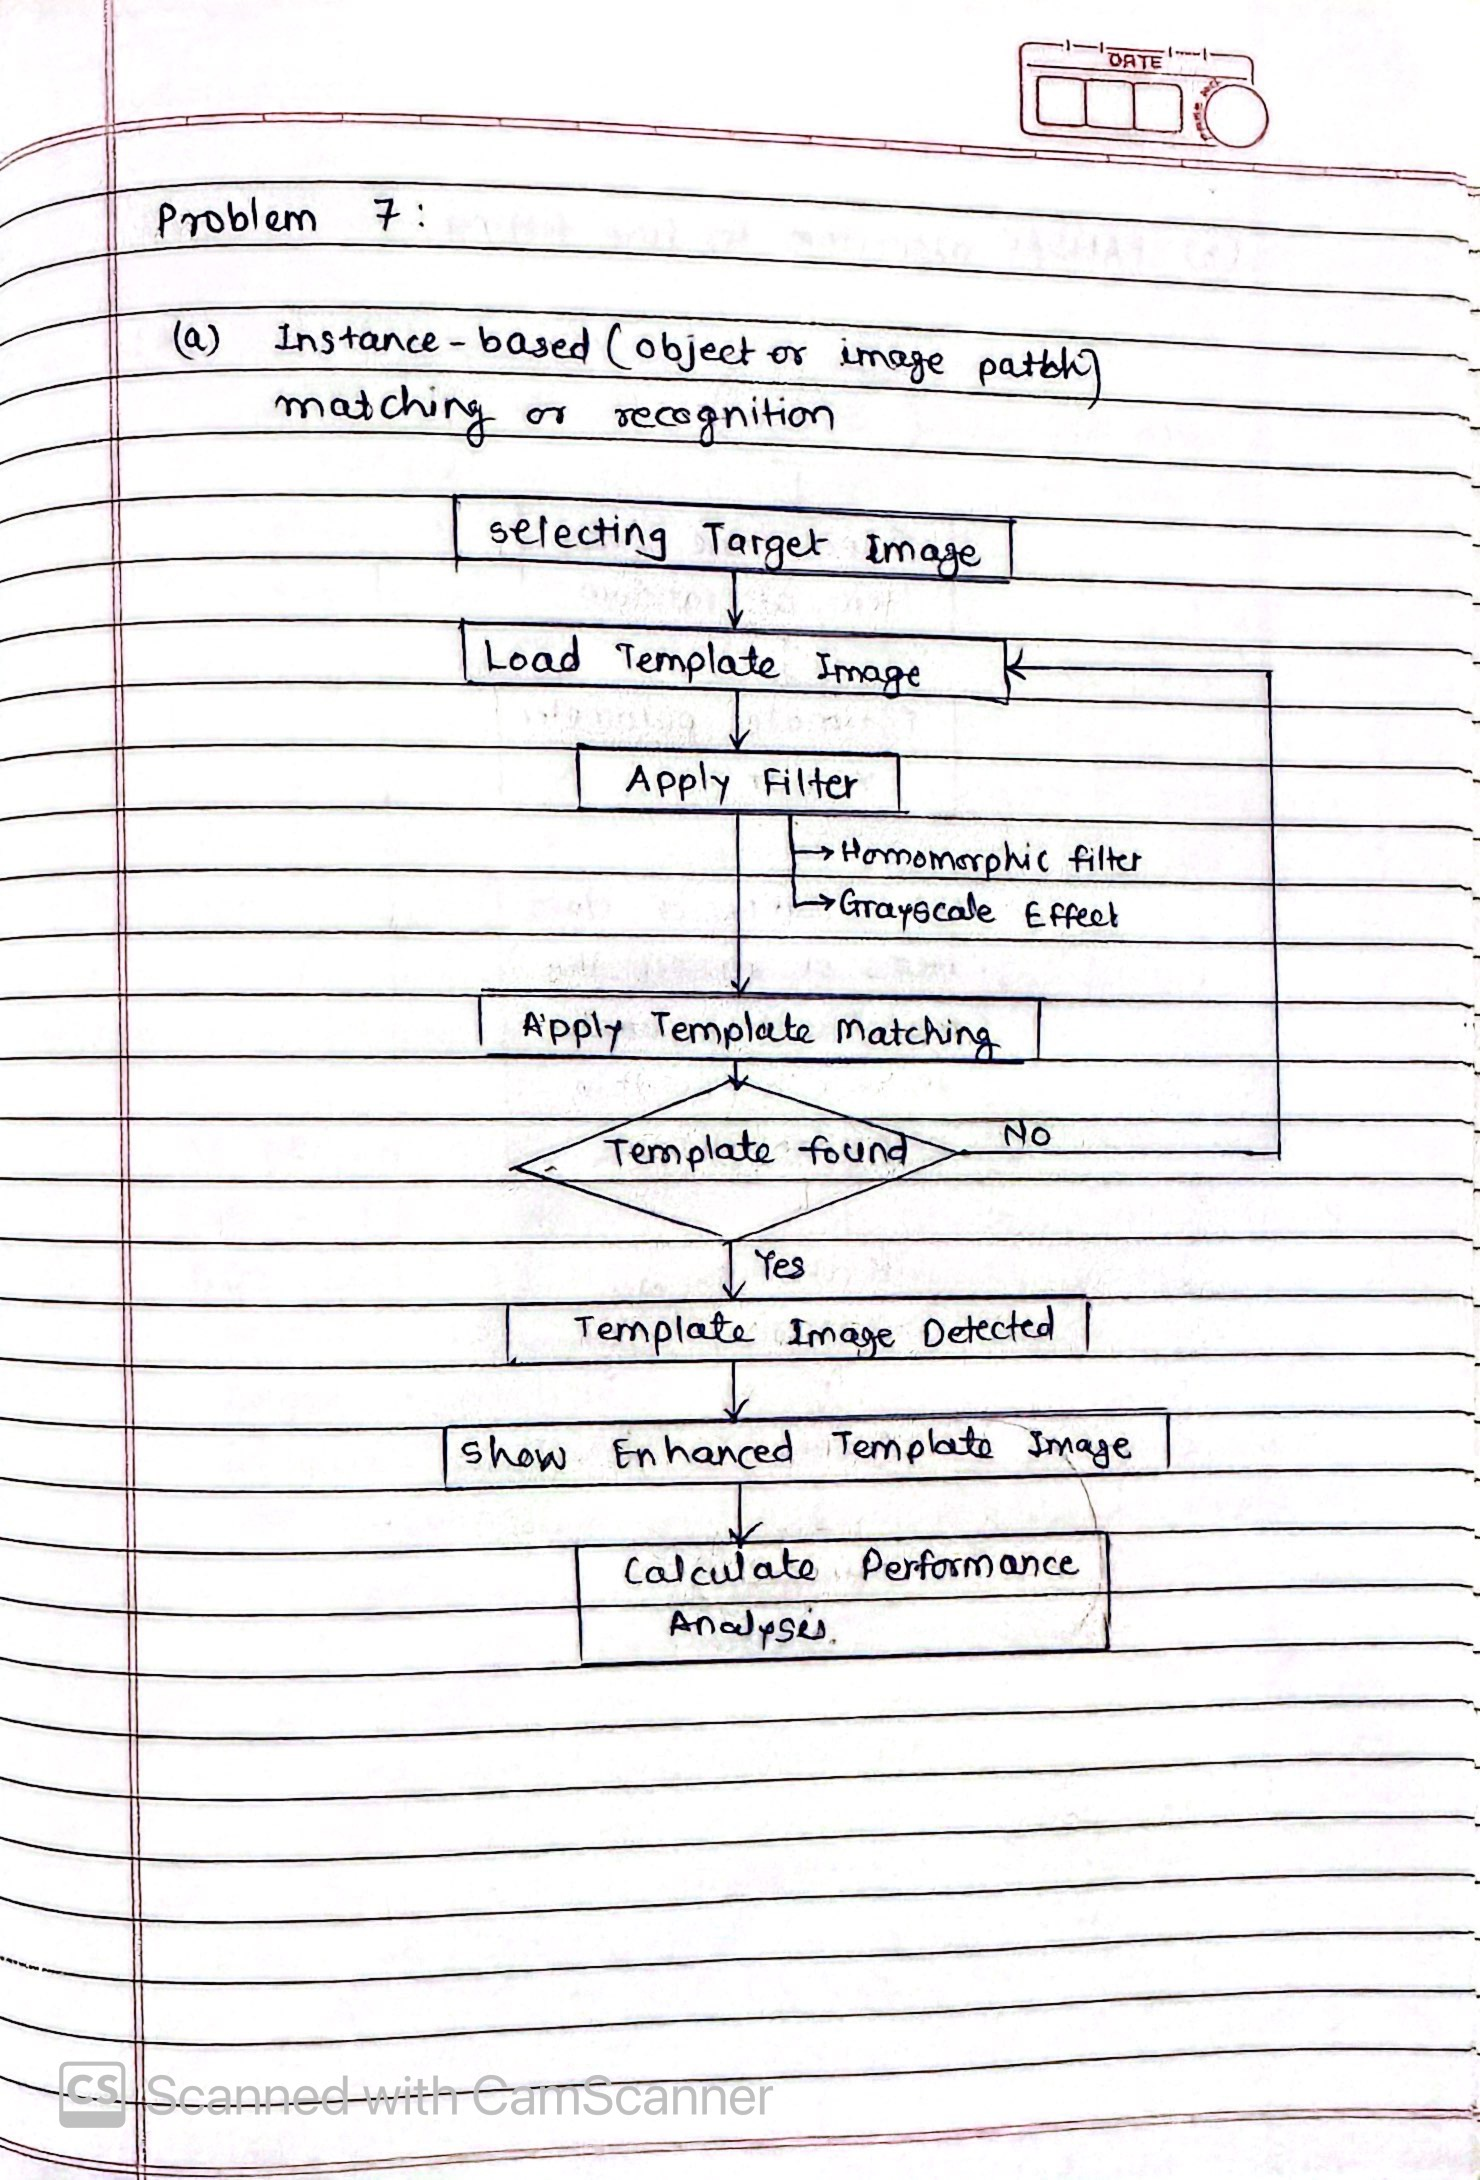 DATE
Problem 7:
(a) Instance-based (object or image patch)
matching or recognition
selecting Target Image
Load Template Image
Apply Filter
→ Homomorphic filter
→ Grayscale Effect
Apply Template Matching
Template found
NO
Yes
Template Image Detected
Show Enhanced Template Image
Calculate Performance
Analysis.
CS Scanned with CamScanner